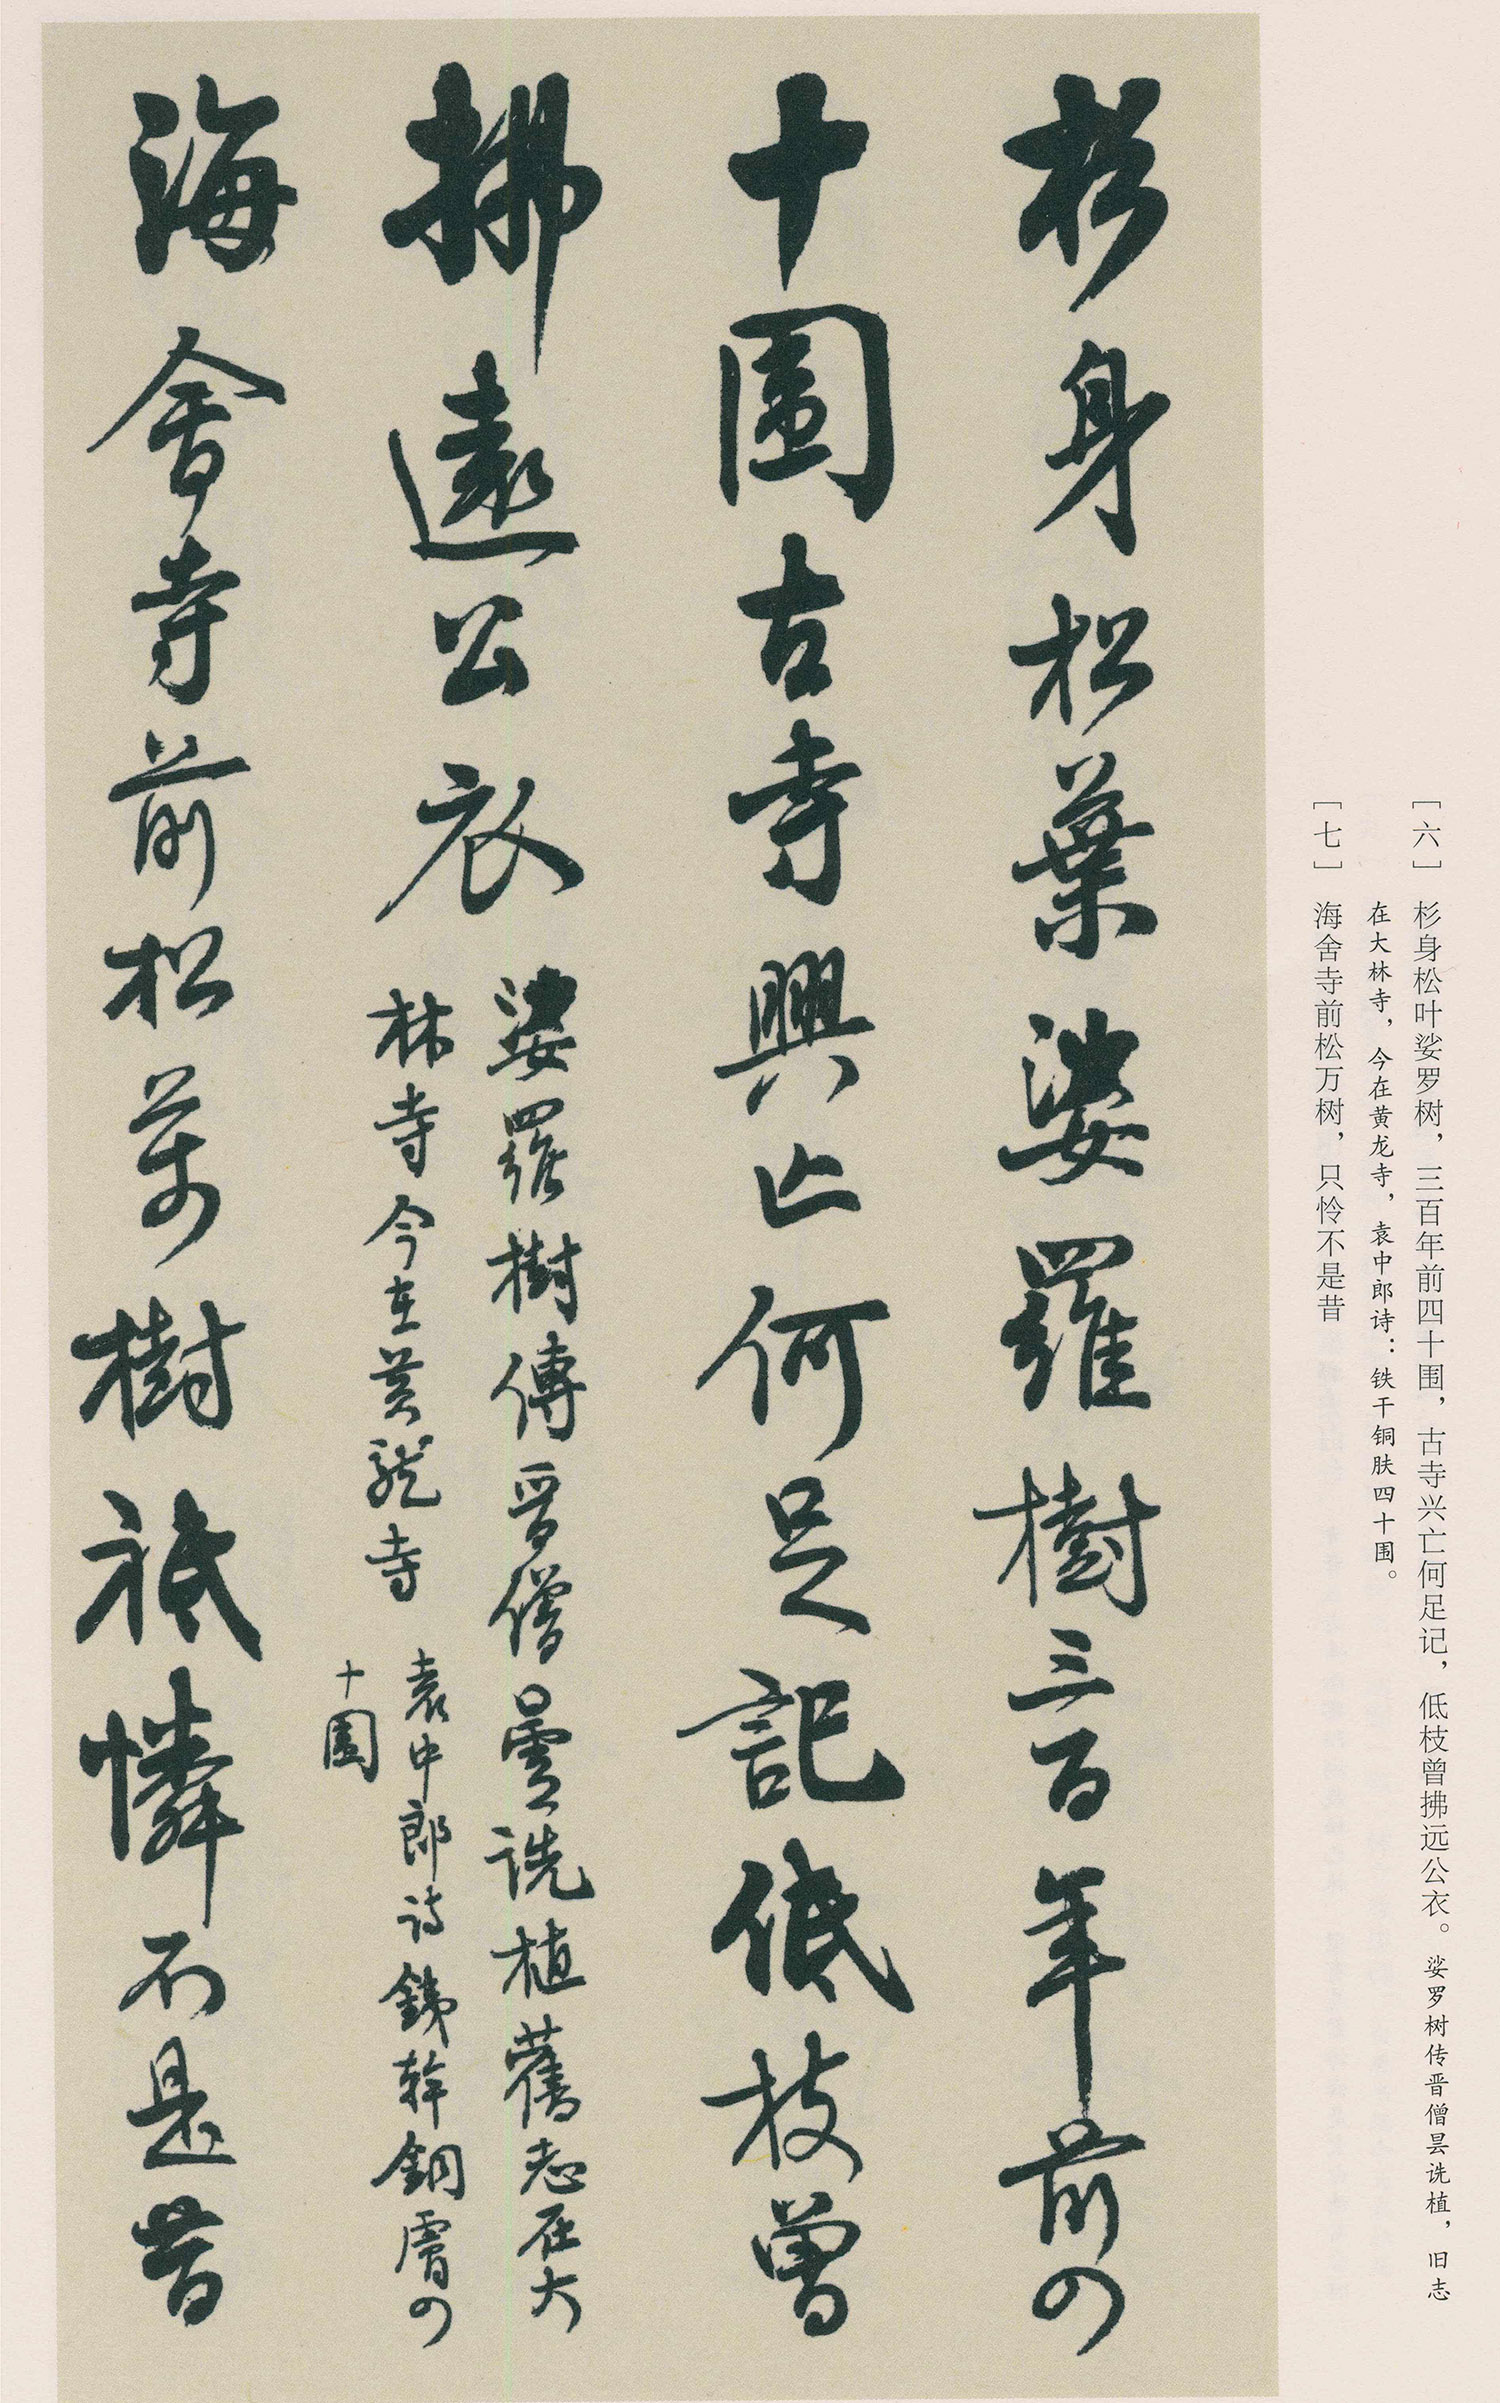 [六] 杉身松叶娑罗树，三百年前四十围，古寺兴亡何足记，低枝曾拂远公衣。娑罗树传晋僧昙诜植，旧志
在大林寺，今在黄龙寺，袁中郎诗：铁干铜肤四十围。
[七] 海舍寺前松万树，只怜不是昔
杉身松葉娑羅樹三百年前四
十圍古寺興亡何足記低枝曾
拂遠公衣
娑羅樹傳晋僧曇詵植舊志在大
林寺今在黄龍寺
袁中郎詩鐵幹銅膚四
十圍
海會寺前松萬樹祇憐不是昔